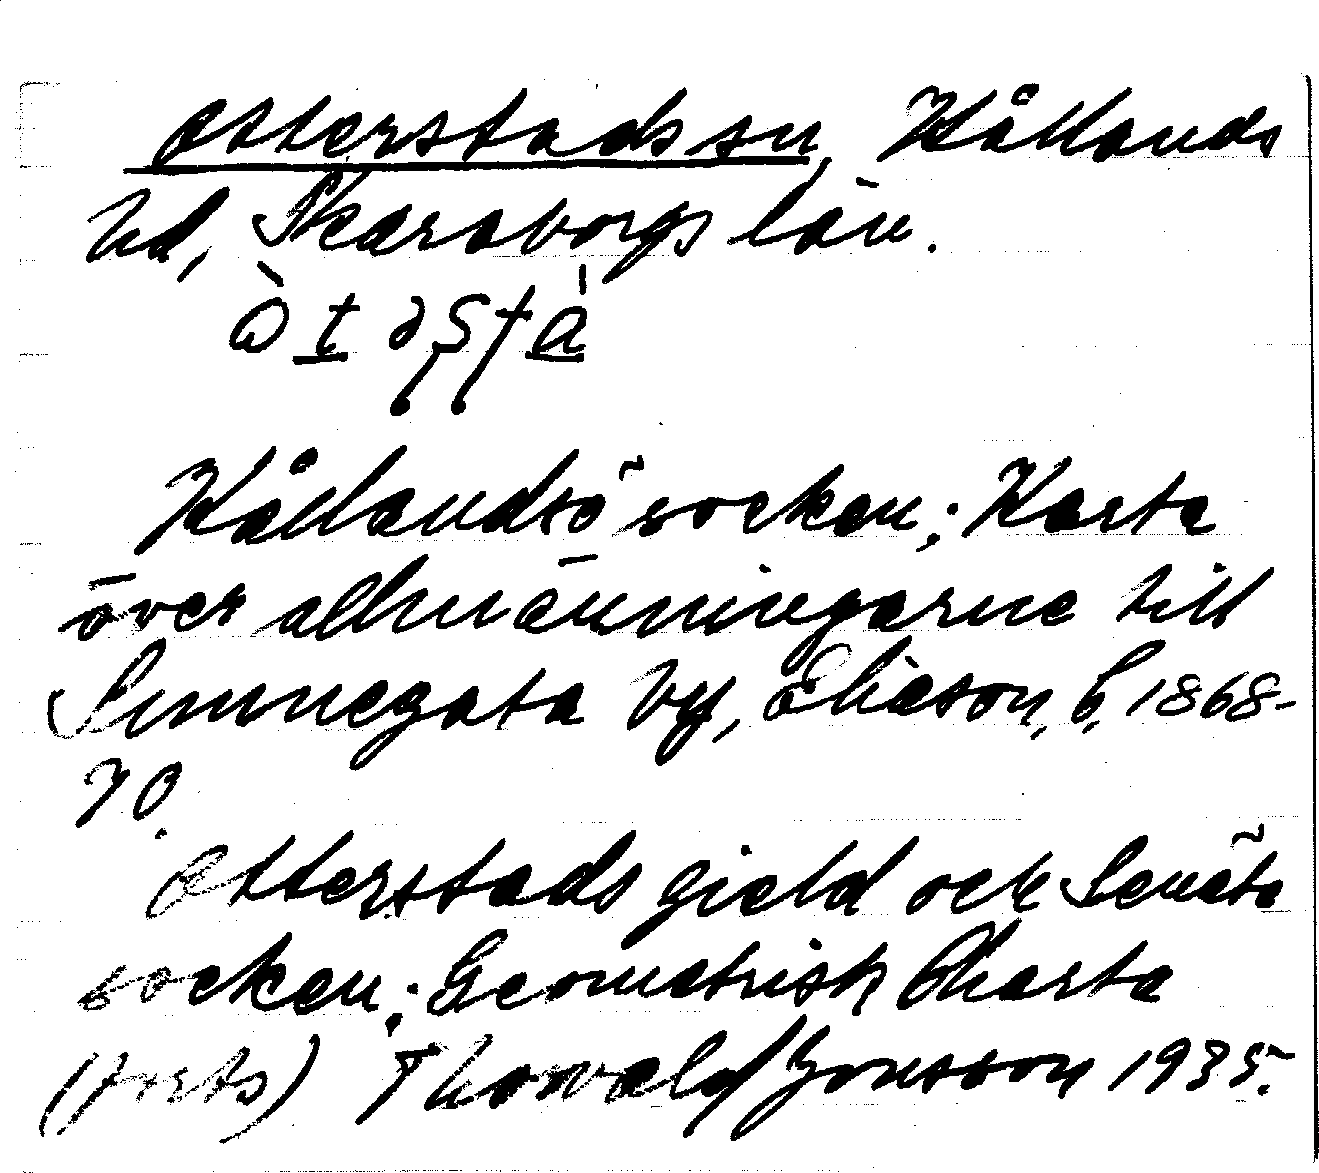 Otterstads sn, Kållands
hd, Skaraborgs län.
Kållandsö socken; Karta
över allmänningarne till
Sunnegata by, Eliason, b, 1868-
70.
Otterstads gield och Senäte
socken; Geometrisk Charta
(forts) Thorvald Jonsson 1935.